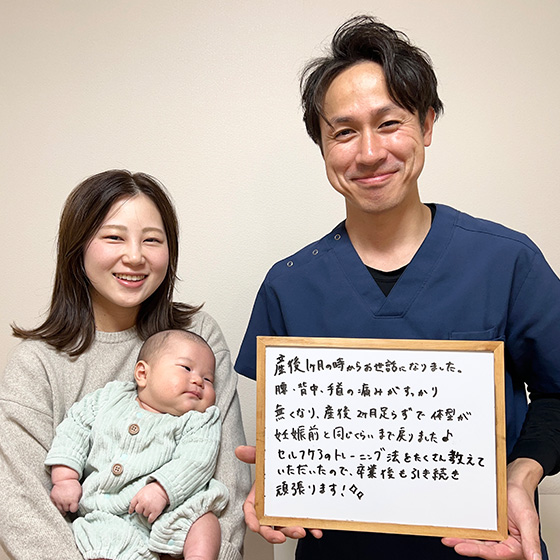 産後1ヶ月の時からお世話になりました。
腰・背中、手首の痛みがすっかり
無くなり、産後2ヶ月足らずで体型が
妊娠前と同じくらいまで戻りました♪
セルフケアのトレーニング法をたくさん教えて
いただいたので、卒業後も引き続き
頑張ります！